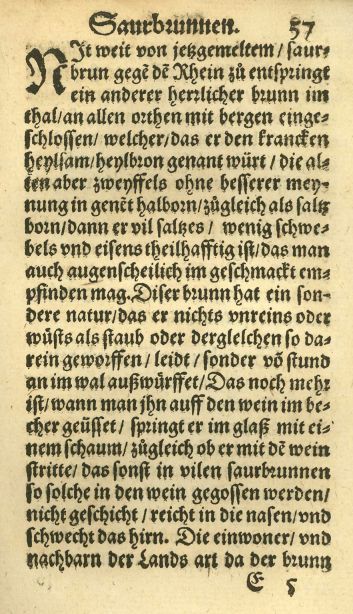 Saurbrunnen. 57
NIt weit von jetzgemeltem / saur-
brun gegẽ dẽ Rhein zů entspringt
ein anderer herrlicher brunn im
thal / an allen orthen mit bergen einge-
schlossen / welcher / das er den krancken
heylsam / heylbron genant würt / die al-
ten aber zweyffels ohne besserer mey-
nung in genẽt halborn / zůgleich als saltz
born / dann er vil saltzes / wenig schwe-
bels vnd eisens theilhafftig ist / das man
auch augenscheilich im geschmackt em-
pfinden mag. Diser brunn hat ein son-
dere natur / das er nichts vnreins oder
wůsts als staub oder dergleichen so da-
rein geworffen / leidt / sonder võ stund
an im wal außwürffet / Das noch mehr
ist / wann man jhn auff den wein im be-
cher geüsset / springt er im glaß mit ei-
nem schaum / zůgleich ob er mit dẽ wein
stritte / das sonst in vilen saurbrunnen
so solche in den wein gegossen werden /
nicht geschicht / reicht in die nasen / vnd
schwecht das hirn. Die einwoner / vnd
nachbarn der Lands art da der brunn
E 5